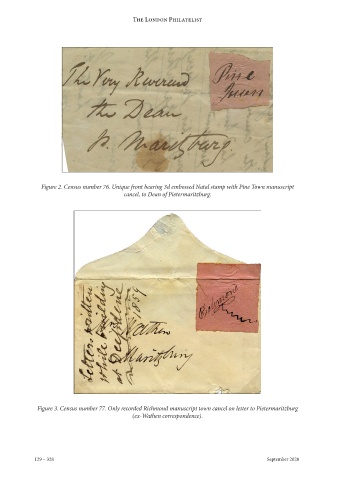 The London Philatelist
The Very Reverend
the Dean
P. Maritzburg
Pine
Town
Figure 2. Census number 76. Unique front bearing 3d embossed Natal stamp with Pine Town manuscript
cancel, to Dean of Pietermaritzburg.
Letters written
while residing
at
1859
Richmond
Wathen
Maritzburg
Figure 3. Census number 77. Only recorded Richmond manuscript town cancel on letter to Pietermaritzburg
(ex-Wathen correspondence).
September 2020